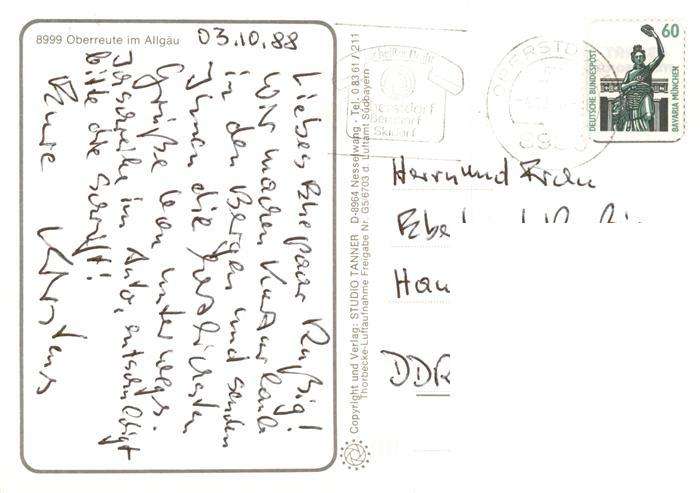 8999 Oberreute im Allgäu
03.10.88
Liebes Ehepaar Rußig!
Wir machen Kurzurlaub
in den Bergen und senden
Ihnen die herzlichsten
Grüße von unterwegs.
Ich schreibe im Auto, entschuldigt
bitte die Schrift!
Eure
Copyright und Verlag: STUDIO TANNER D-8964 Nesselwang · Tel. 08361/211
Thorbecke-Luftaufnahme Freigabe Nr. G5/6703 d. Luftamt Südbayern
OBERSTD
60
DEUTSCHE BUNDESPOST
BAVARIA MÜNCHEN
Herrn und Frau
DDR